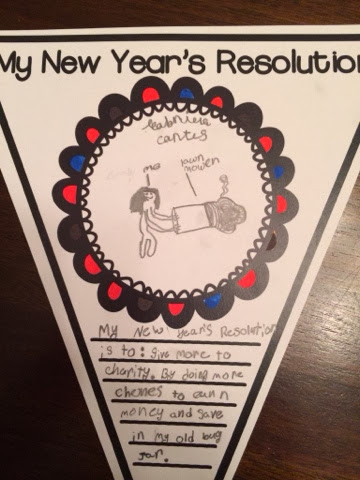 My New Year's Resolution
me
lawn
mower
My New Year's Resolution
is to: give more to
charity. By doing more
chemes to earn
money and save
in my old bug
jar.